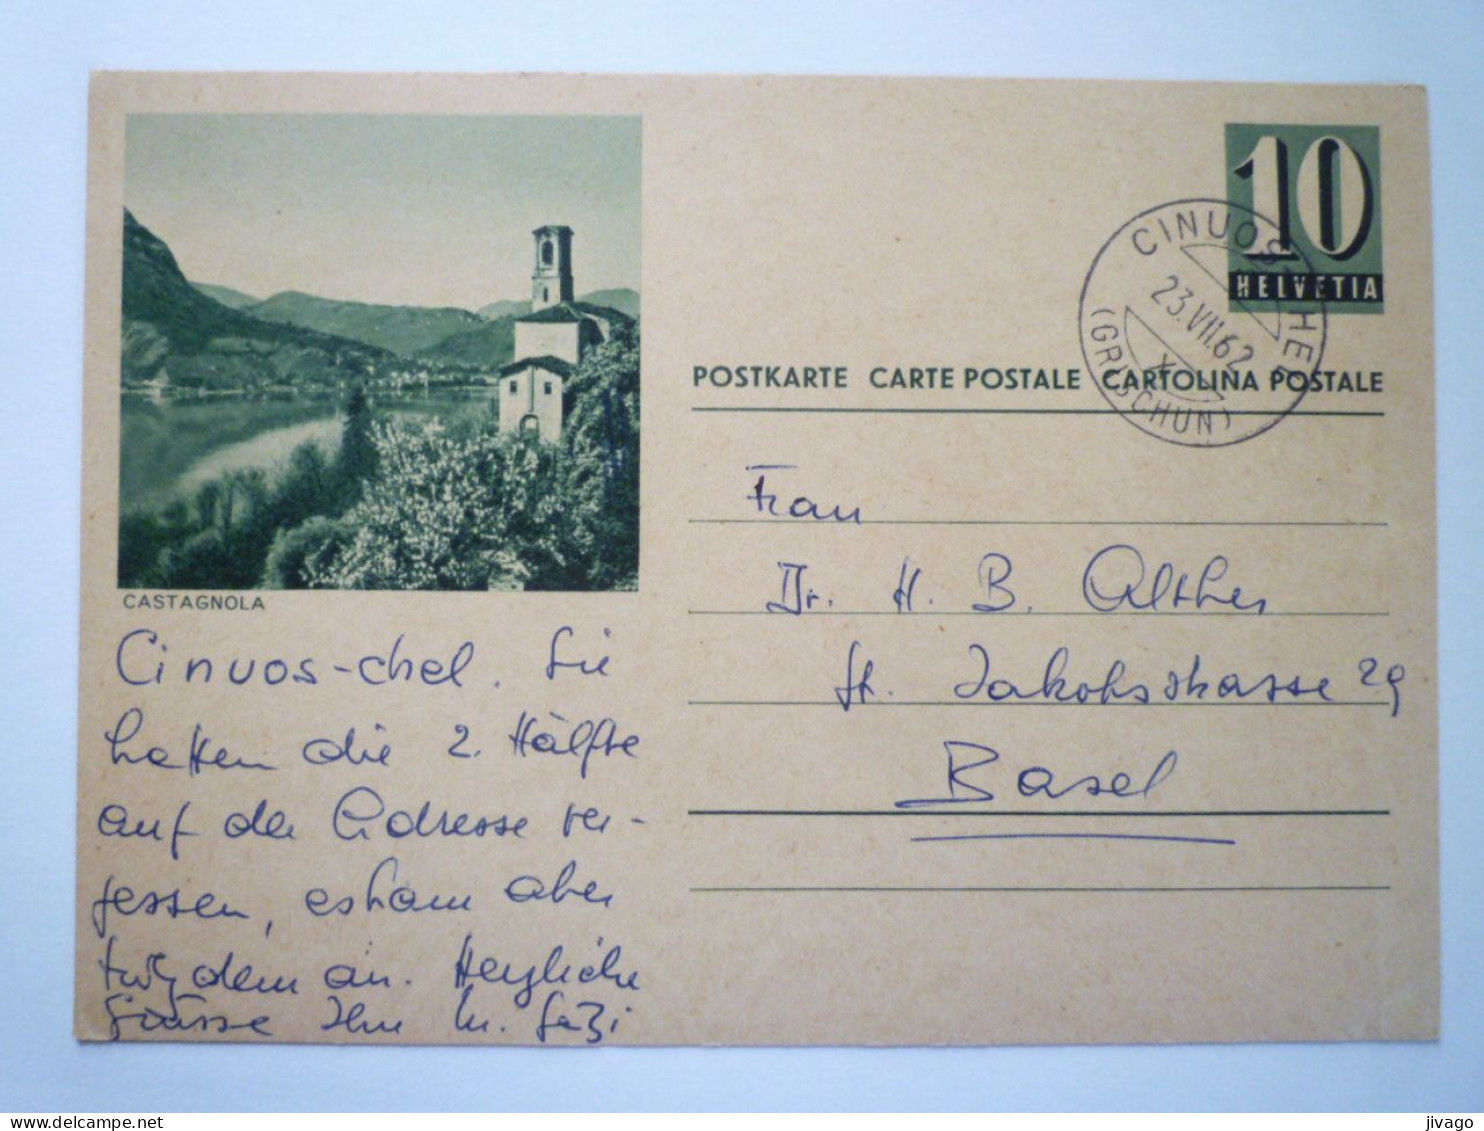 10
HELVETIA
CINUOS-CHEL
23.VII.62
(GRISCHUN)
POSTKARTE CARTE POSTALE CARTOLINA POSTALE
CASTAGNOLA
Frau
Dr. H. B. Alther
St. Jakobsstrasse 29
Basel
Cinuos-chel. Sie
hatten die 2. Hälfte
auf der Adresse ver-
gessen, es kam aber
trotzdem an. Herzliche
Grüsse Ihr
delcampe.net
jivago